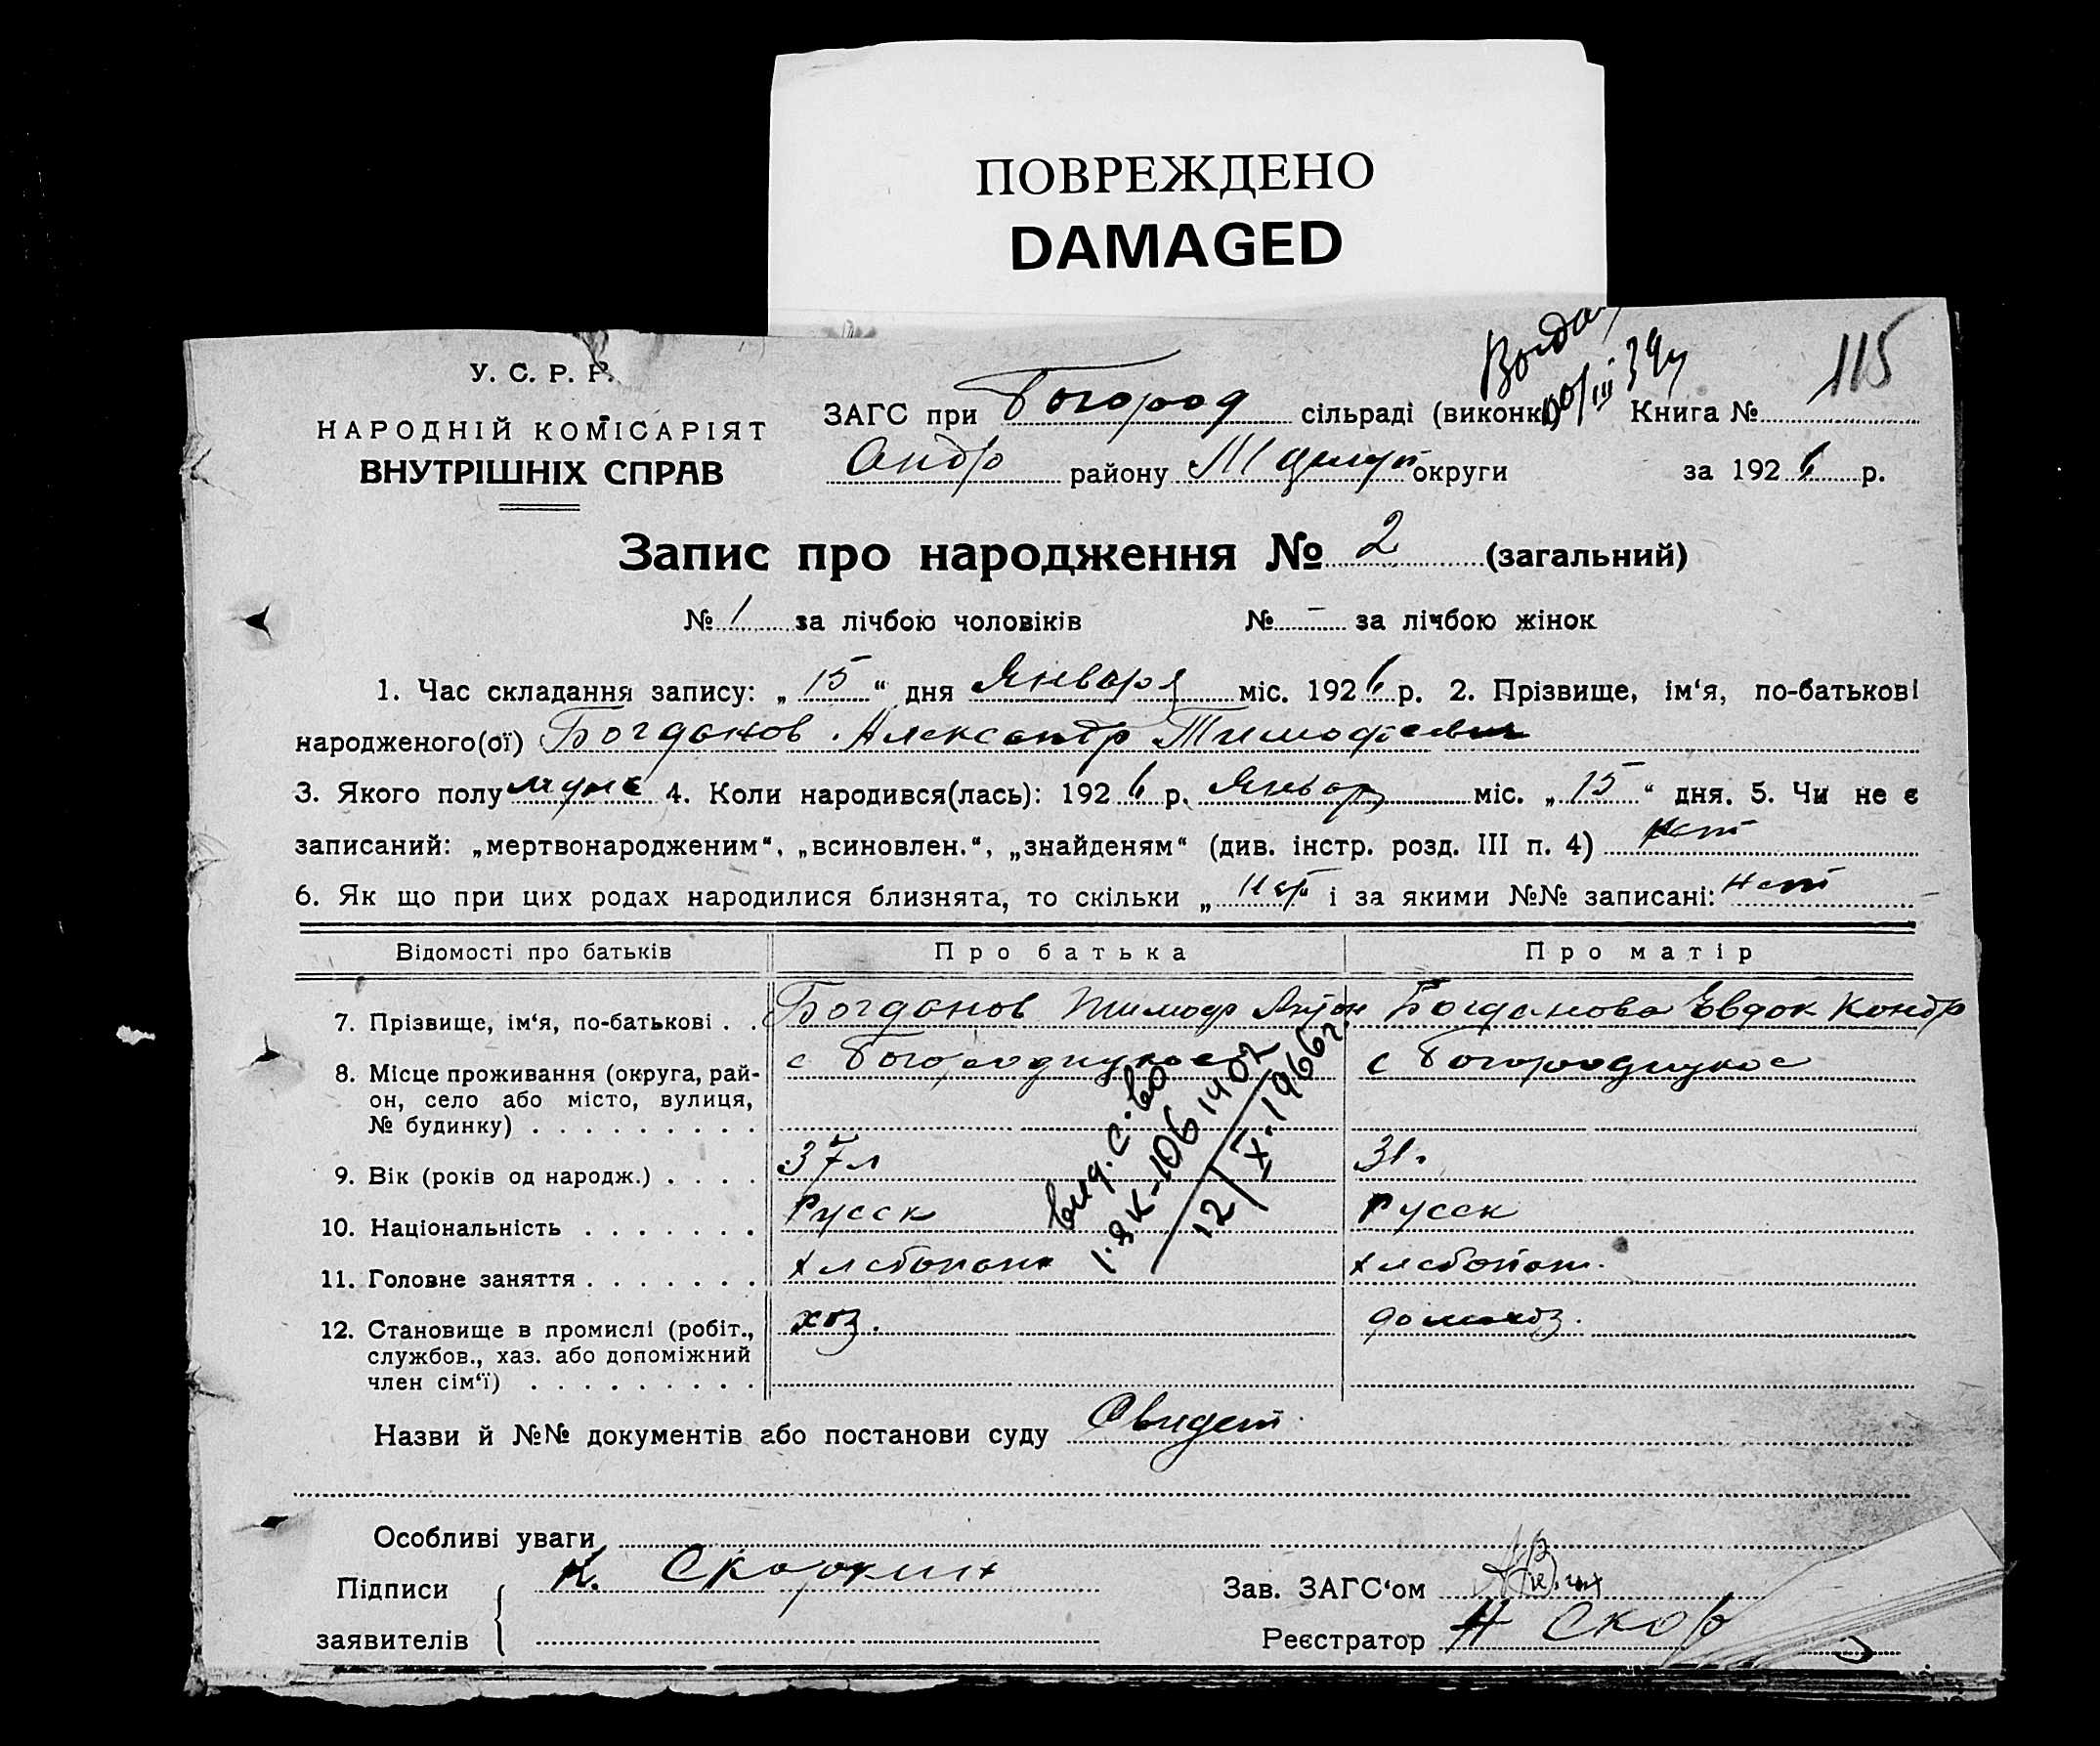 ПОВРЕЖДЕНО
DAMAGED
У. С. Р. Р.
НАРОДНІЙ КОМІСАРІЯТ
ВНУТРІШНІХ СПРАВ
115
ЗАГС при Богород сільраді (виконк Книга №
району округи за 1926 р.
Запис про народження № 2 (загальний)
№ 1 за лічбою чоловіків № - за лічбою жінок
1. Час складання запису: „ 15 “ дня Января міс. 1926 р. 2. Прізвище, ім‘я, по-батькові
народженого(ої) Богданов Александр Тимофеевич
3. Якого полу муж 4. Коли народився(лась): 1926 р. Январ міс. „ 15 “ дня. 5. Чи не є
записаний: „мертвонародженим“, „всиновлен.“, „знайденям“ (див. інстр. розд. III п. 4) нет
6. Як що при цих родах народилися близнята, то скільки „ нет “ і за якими №№ записані: нет
Відомості про батьків Про батька Про матір
7. Прізвище, ім‘я, по-батькові . . Богданов Тимоф Антон Богданова Евдок Кондр
8. Місце проживання (округа, рай- с Богородицкое с Богородицкое
он, село або місто, вулиця,
№ будинку) . . . . . . . . .
9. Вік (років од народж.) . . . . 37 л 31.
10. Національність . . . . . . . Русск Русск
11. Головне заняття . . . . . . . хлебопаш хлебопаш.
12. Становище в промислі (робіт., хоз. домохоз.
службов., хаз. або допоміжний
член сім‘ї) . . . . . . . . .
вид. с-во
1-ЯК-106 1402
12/IX-1966г.
Назви й №№ документів або постанови суду Свидет
Особливі уваги
Підписи К. Скоркин Зав. ЗАГС‘ом
заявителів Реєстратор Н Скор